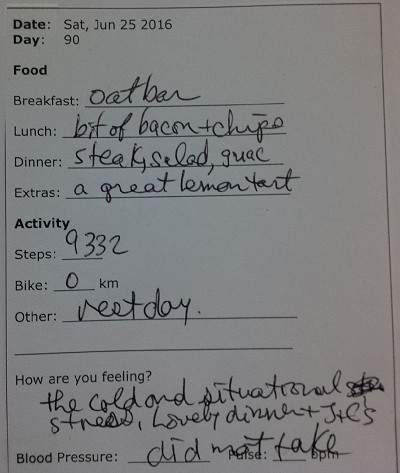 Date: Sat, Jun 25 2016
Day: 90
Food
Breakfast: oat bar
Lunch: bit of bacon + chips
Dinner: steak, salad, guac
Extras: a great lemon tart
Activity
Steps: 9332
Bike: 0 km
Other: rest day.
How are you feeling?
the cold and situational
stress, lovely dinner + J+C's
Blood Pressure: did not take Pulse: bpm